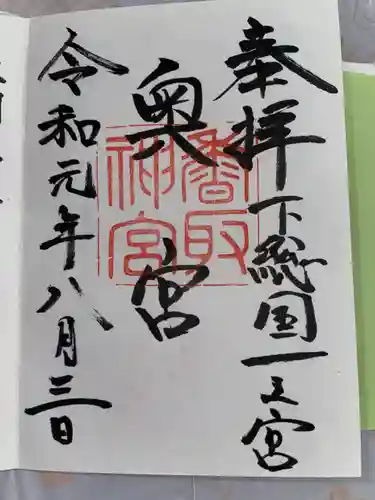 奉拝下総国一之宮
奥宮
香取神宮
令和元年八月三日